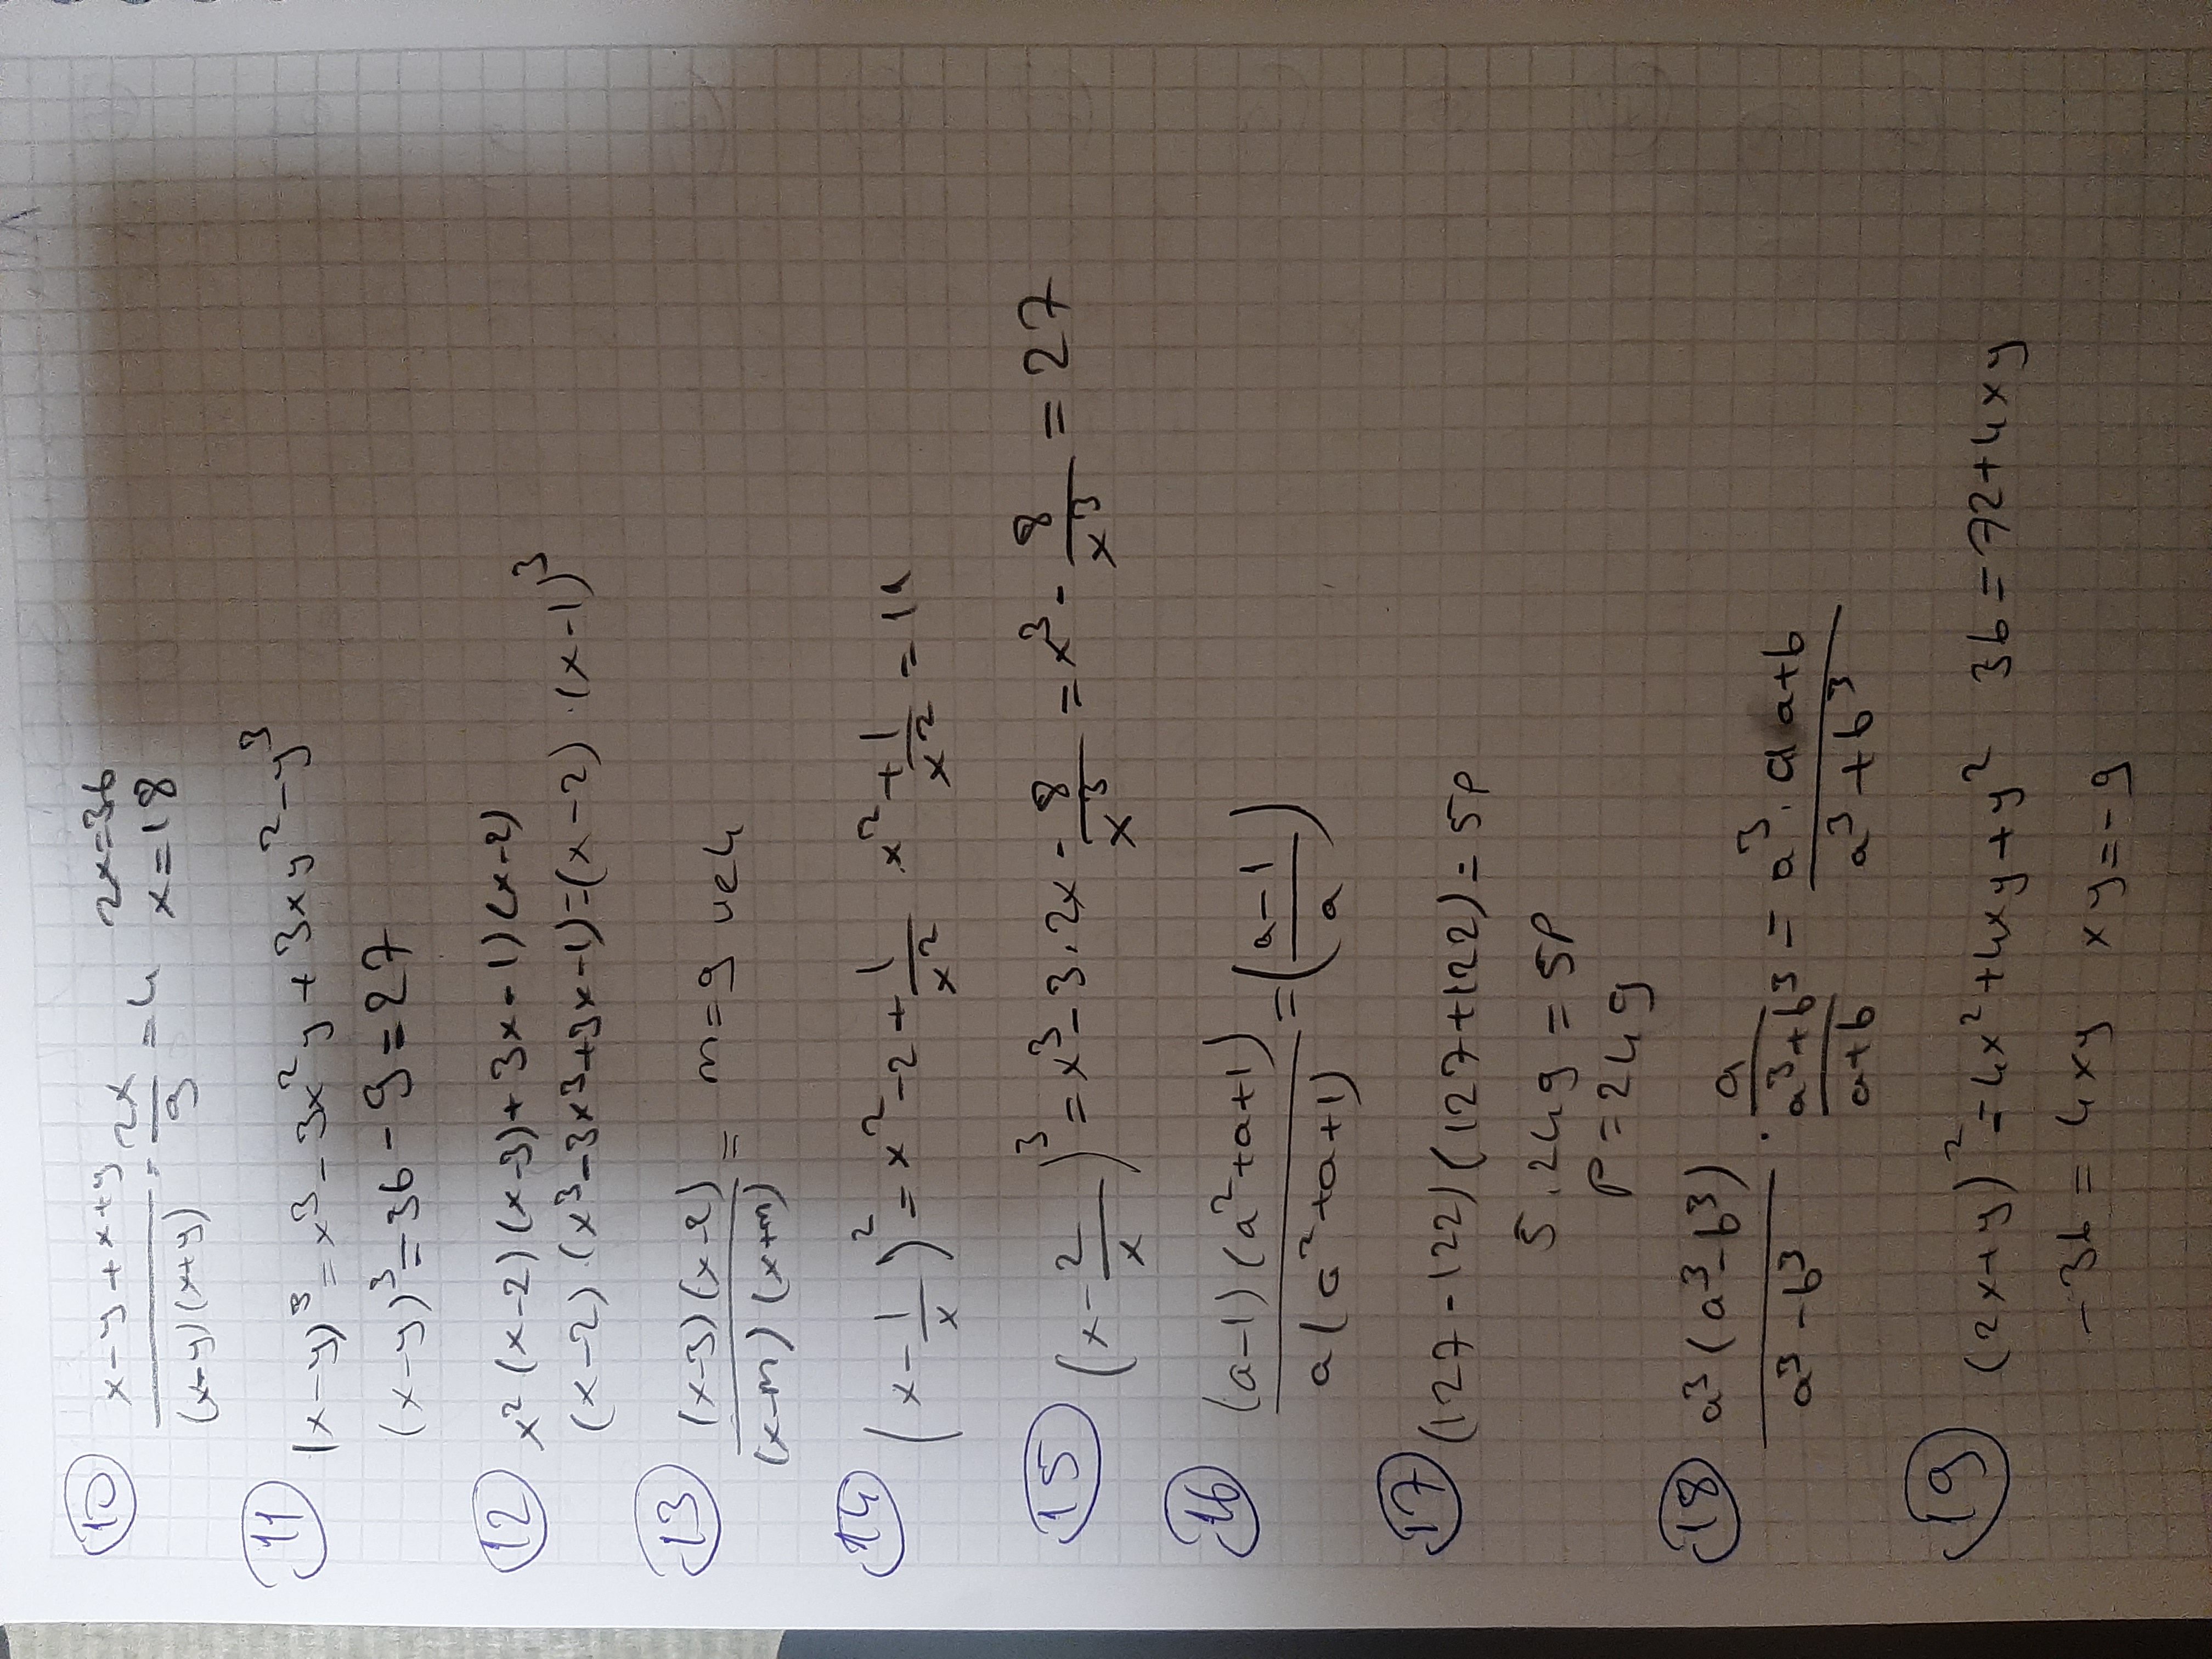 10 (x-y+x+y)/((x-y)(x+y)) = 2x/9 = 4 2x=36
x=18
11 (x-y)³ = x³ - 3x²y + 3xy² - y³
(x-y)³ = 36 - 9 = 27
12 x² (x-2)(x-3) + 3x-1)(x-2)
(x-2) · (x³-3x³+3x-1) = (x-2) · (x-1)³
13 ((x-3)(x-2))/((x-m)(x+m)) = m=9 ve 4
14 (x - 1/x)² = x² - 2 + 1/x² x² + 1/x² = 11
15 (x - 2/x)³ = x³ - 3·2x - 8/x³ = x³ - 8/x³ = 27
16 ((a-1)(a²+a+1))/(a(a²+a+1)) = ((a-1)/a)
17 (127-122)(127+122) = 5p
5.249 = 5P
P=249
18 (a³(a³-b³))/(a³-b³) · a/((a³+b³)/(a+b)) = (a³. a a+b)/(a³+b³)
19 (2x+y)² = 4x²+4xy+y² 36=72+4xy
-36 = 4xy xy=-9